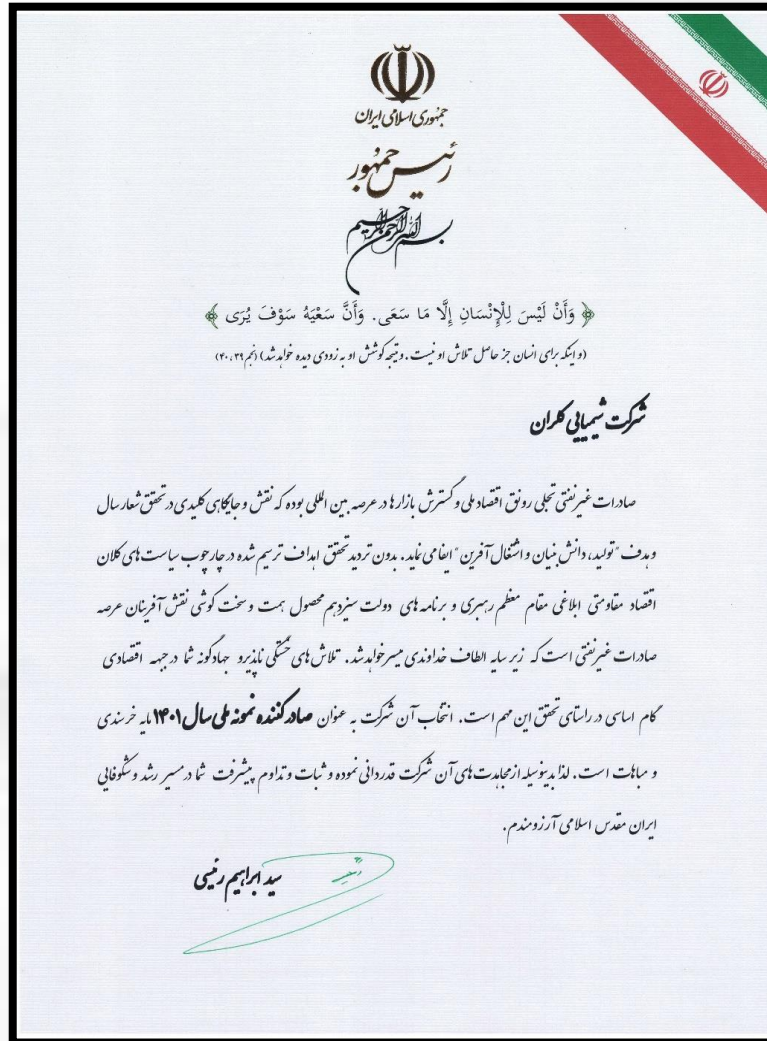 جمهوری اسلامی ایران
رئیس جمهور
بسم الله الرحمن الرحیم
﴿ وَأَنْ لَيْسَ لِلْإِنْسَانِ إِلَّا مَا سَعَى. وَأَنَّ سَعْيَهُ سَوْفَ يُرَى ﴾
(و اینکه برای انسان جز حاصل تلاش او نیست. و نتیجه کوشش او به زودی دیده خواهد شد) (نجم ۳۹، ۴۰)
شرکت شیمیایی کلران
صادرات غیرنفتی تجلی رونق اقتصاد ملی و گسترش بازارها در عرصه بین المللی بوده که نقش و جایگاهی کلیدی در تحقق شعار سال
و هدف "تولید، دانش بنیان و اشتغال آفرین" ایفا می نماید. بدون تردید تحقق اهداف ترسیم شده در چارچوب سیاست های کلان
اقتصاد مقاومتی ابلاغی مقام معظم رهبری و برنامه های دولت سیزدهم محصول همت و سخت کوشی نقش آفرینان عرصه
صادرات غیرنفتی است که زیر سایه الطاف خداوندی میسر خواهد شد. تلاش های خستگی ناپذیر و جهادگونه شما در جبهه اقتصادی
گام اساسی در راستای تحقق این مهم است. انتخاب آن شرکت به عنوان صادرکننده نمونه ملی سال ۱۴۰۱ مایه خرسندی
و مباهات است. لذا بدینوسیله از مجاهدت های آن شرکت قدردانی نموده و ثبات و تداوم پیشرفت شما در مسیر رشد و شکوفایی
ایران مقدس اسلامی آرزومندم.
سید ابراهیم رئیسی